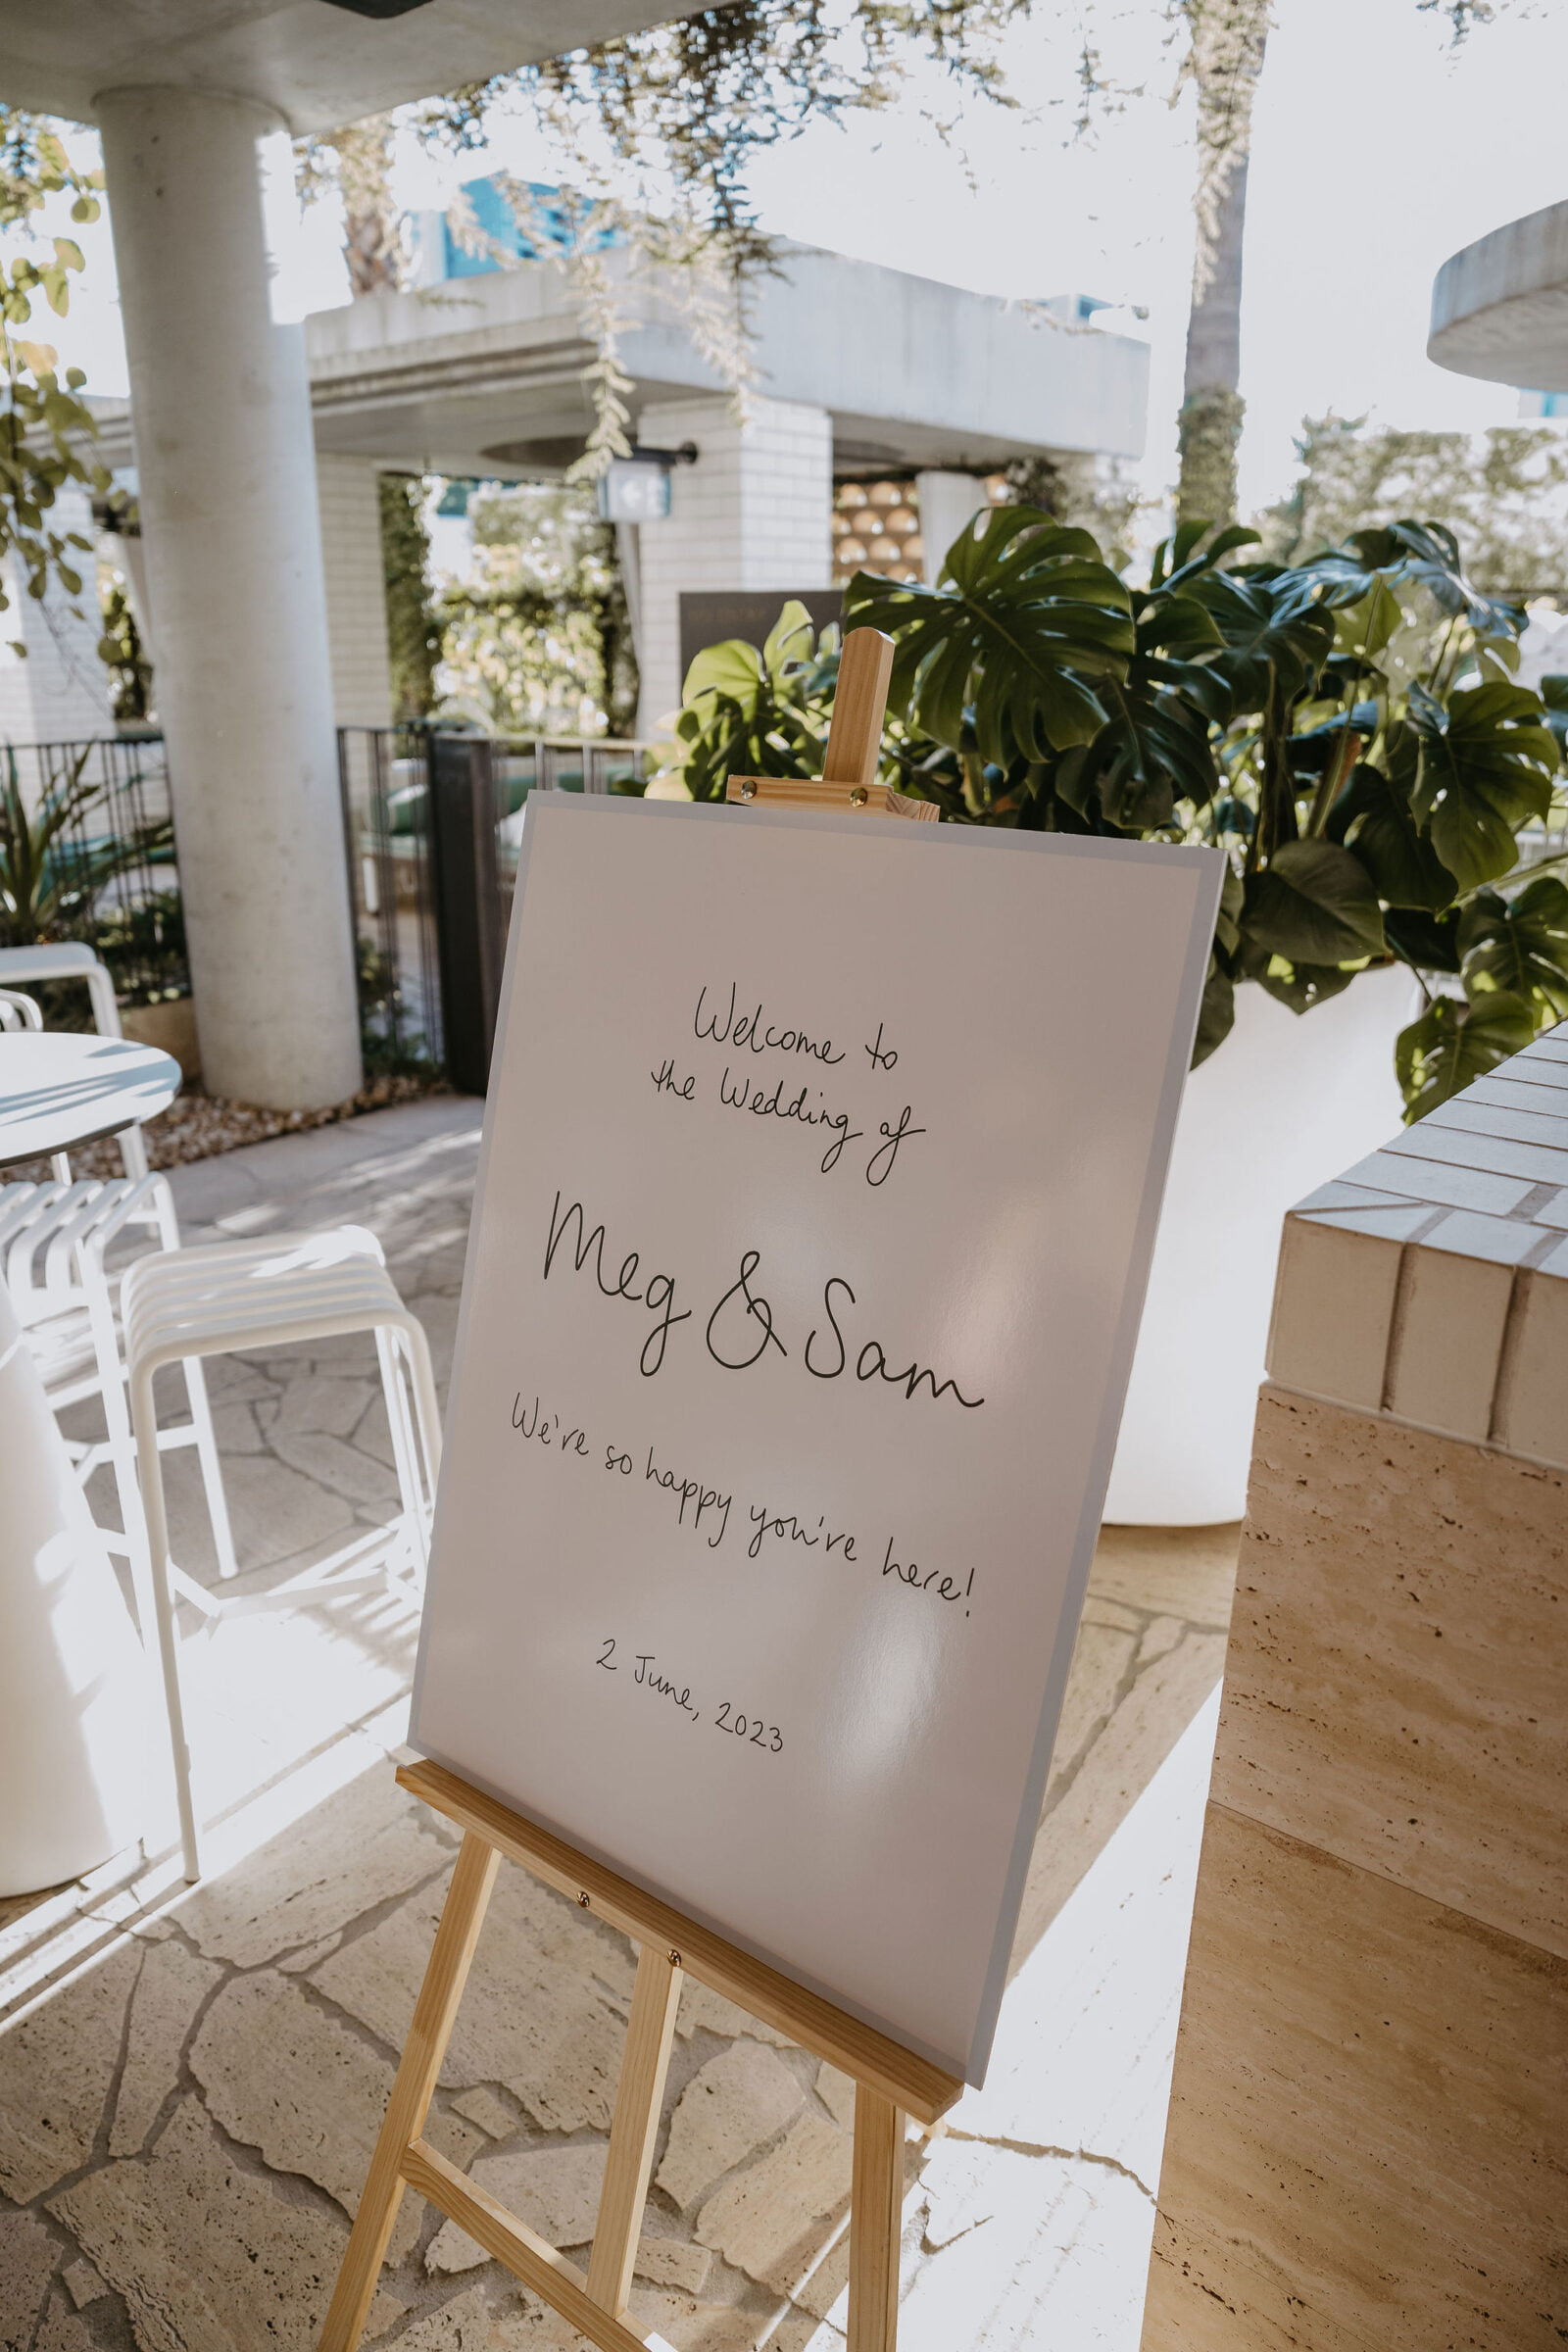 Welcome to
the Wedding of
Meg & Sam
We're so happy you're here!
2 June, 2023